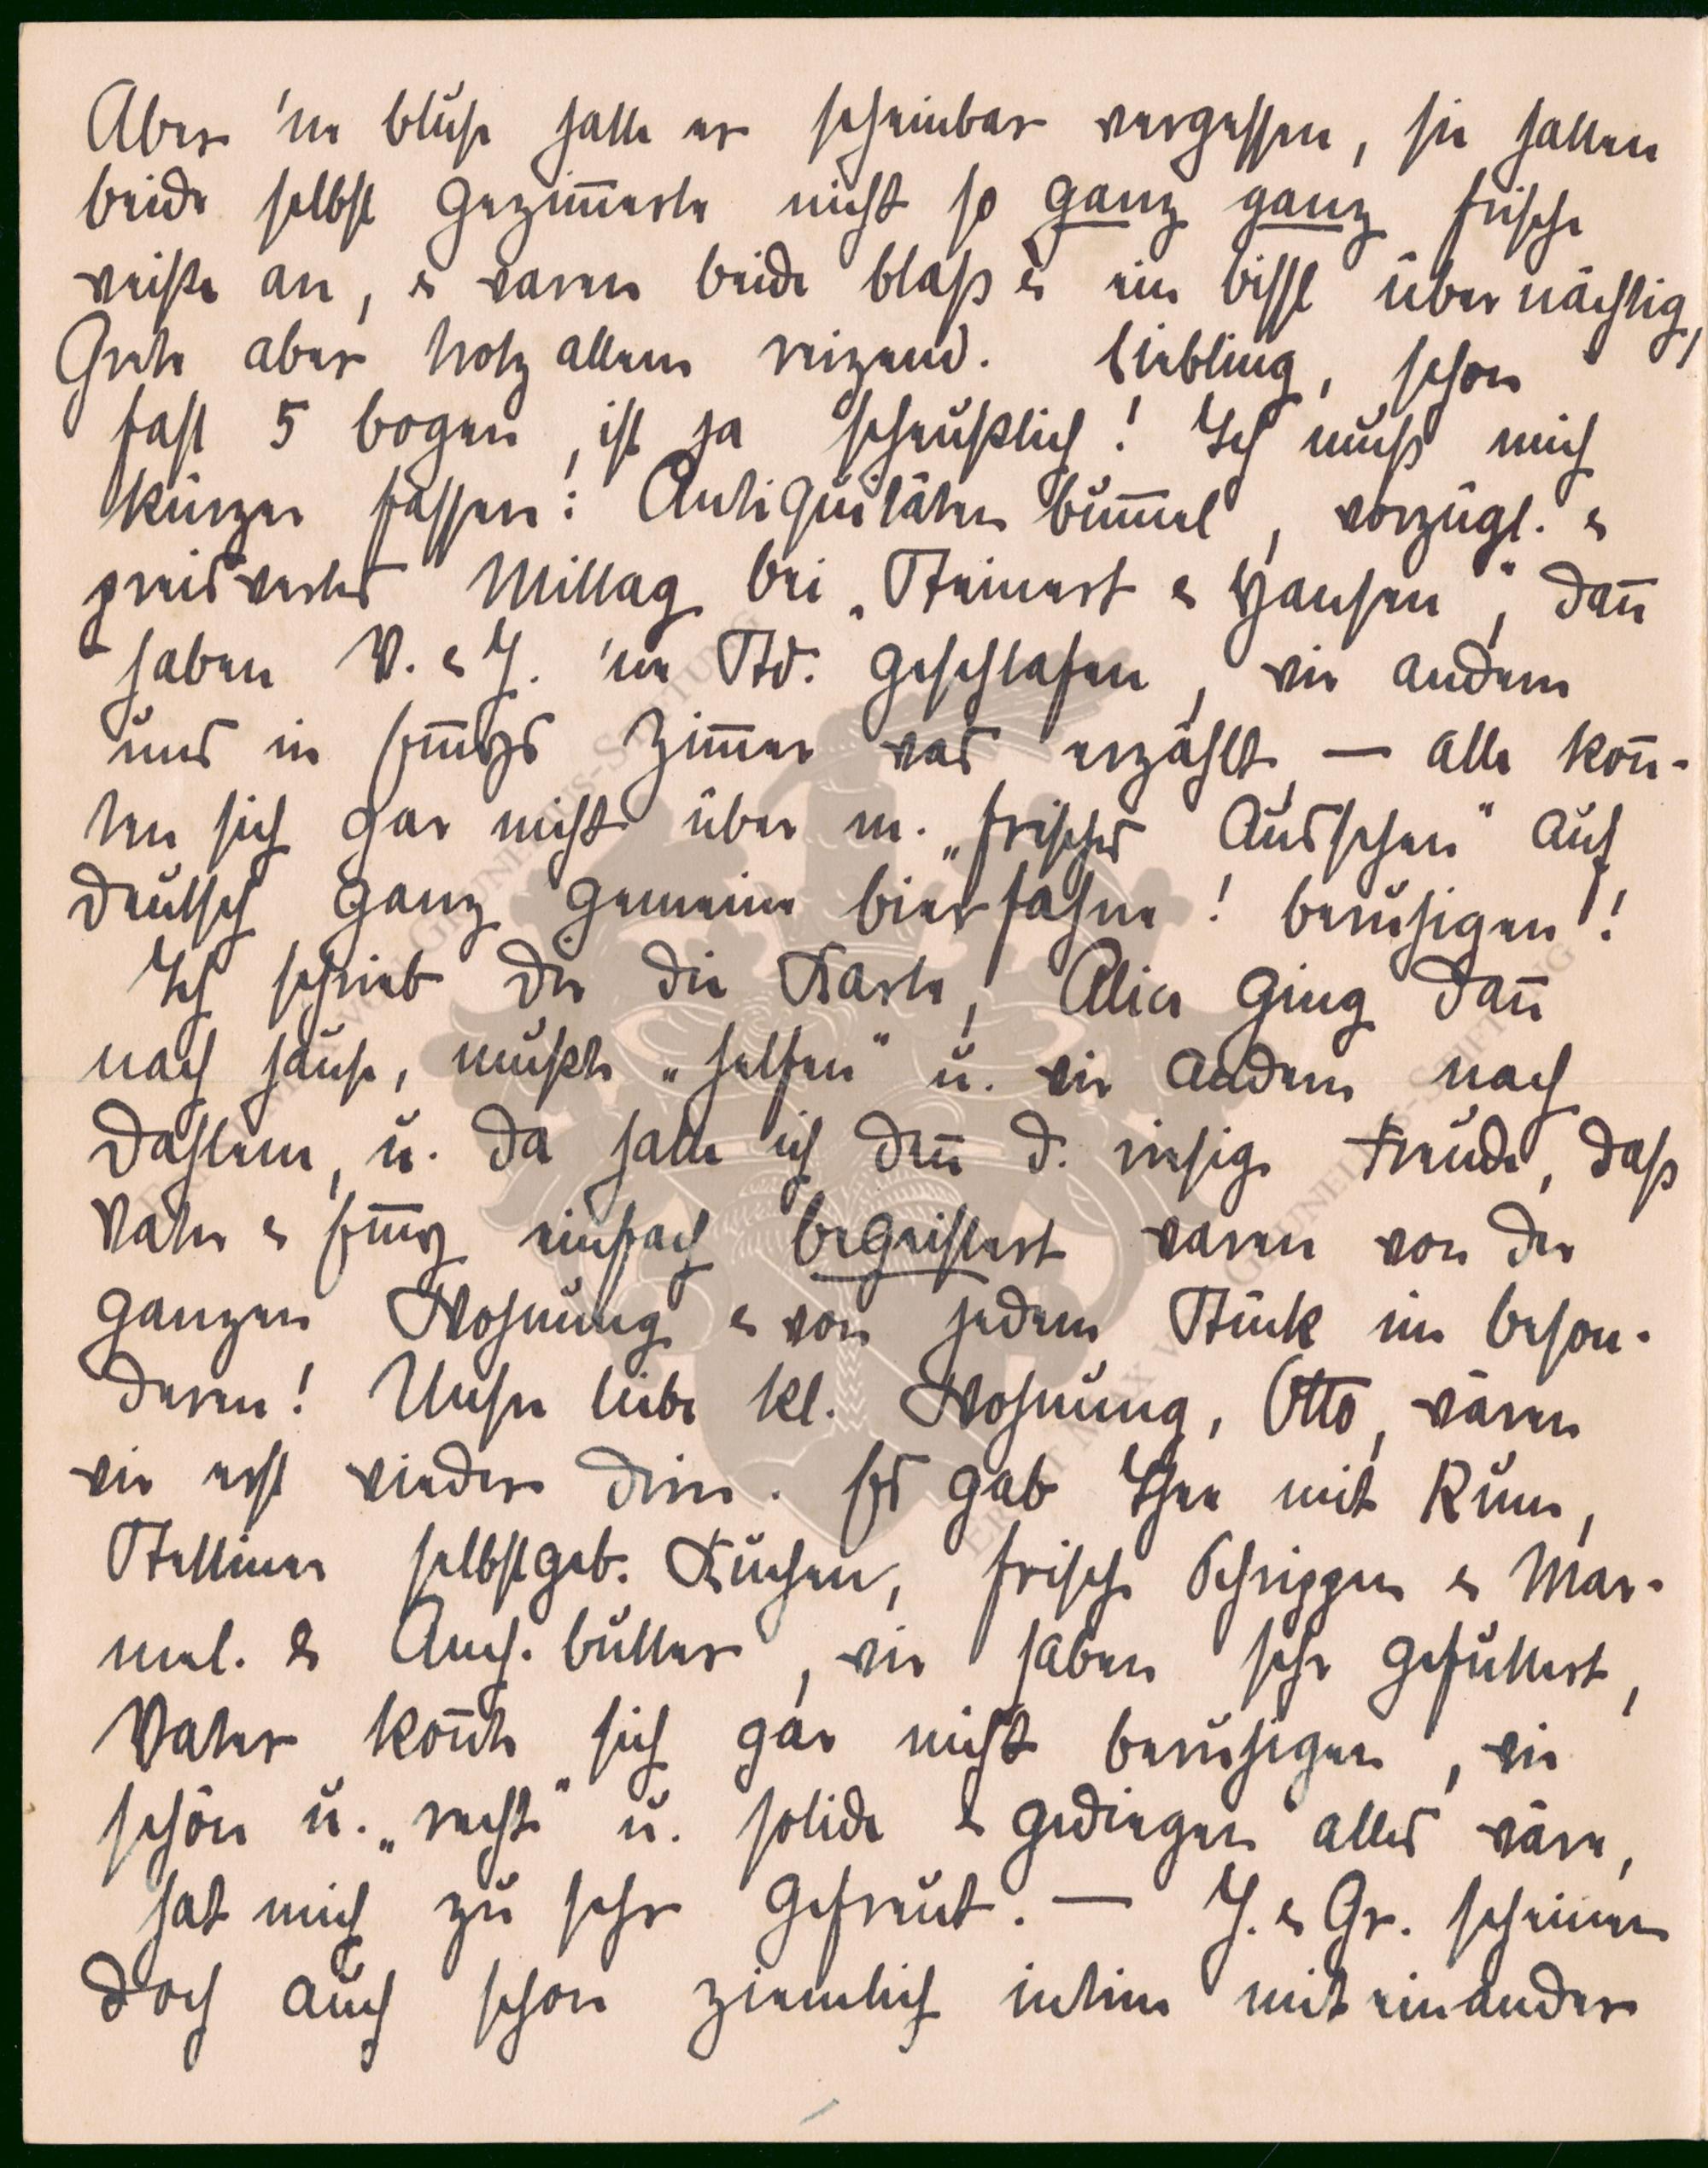 Aber 'ne Bluse hatte er scheinbar vergessen, sie hatten
beide selbst gezim̄erte nicht so ganz ganz frische
weiße an, & waren beide blaß & ein bissl übernächtig,
Grete aber trotz allem reizend. Liebling, schon
fast 5 Bogen, ist ja scheußlich! Ich muß mich
kürzer fassen: Antiquitätenbum̄el, vorzügl. &
preiswertes Mittag bei „Steinert & Hansen", dan̄
haben V. & J. 'ne Std. geschlafen, wir andern
uns in Em̄ys Zim̄er was erzählt, — alle kon̄-
ten sich gar nicht über m. „frisches Aussehen" auf
deutsch ganz gemeine Bierfahne! beruhigen!!
Ich schrieb Dir die Karte, Alice ging dan̄
nach Hause, mußte „helfen" u. wir andern nach
Dahlem, u. da hatte ich den̄ d. riesige Freude, daß
Vater & Em̄y einfach begeistert waren von der
ganzen Wohnung & von jedem Stück im beson-
deren! Unsre liebe kl. Wohnung, Otto, wären
wir erst wieder drin. Es gab Thee mit Rum,
Stettiner selbstgeb. Kuchen, frische Schrippen & Mar-
mel. & Amh. butter, wir haben sehr gefuttert,
Vater kon̄te sich gar nicht beruhigen, wie
schön u. „recht" u. solide & gediegen alles wäre,
hat mich zu sehr gefreut. — J. & Gr. scheinen
doch auch schon ziemlich intim miteinander